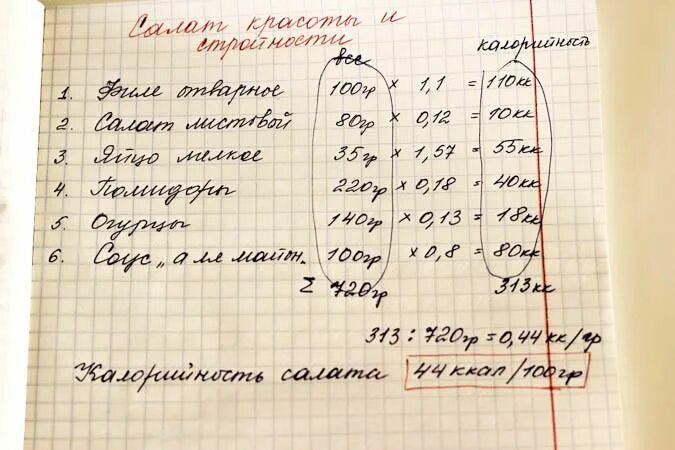 Салат красоты и
стройности
вес калорийность
1. Филе отварное 100гр × 1,1 = 110кк
2. Салат листовой 80гр × 0,12 = 10кк
3. Яйцо мелкое 35гр × 1,57 = 55кк
4. Помидоры 220гр × 0,18 = 40кк
5. Огурцы 140гр × 0,13 = 18кк
6. Соус „а ля майон. 100гр × 0,8 = 80кк
Σ 720гр 313кк
313 : 720гр = 0,44кк/гр
Калорийность салата 44ккал/100гр